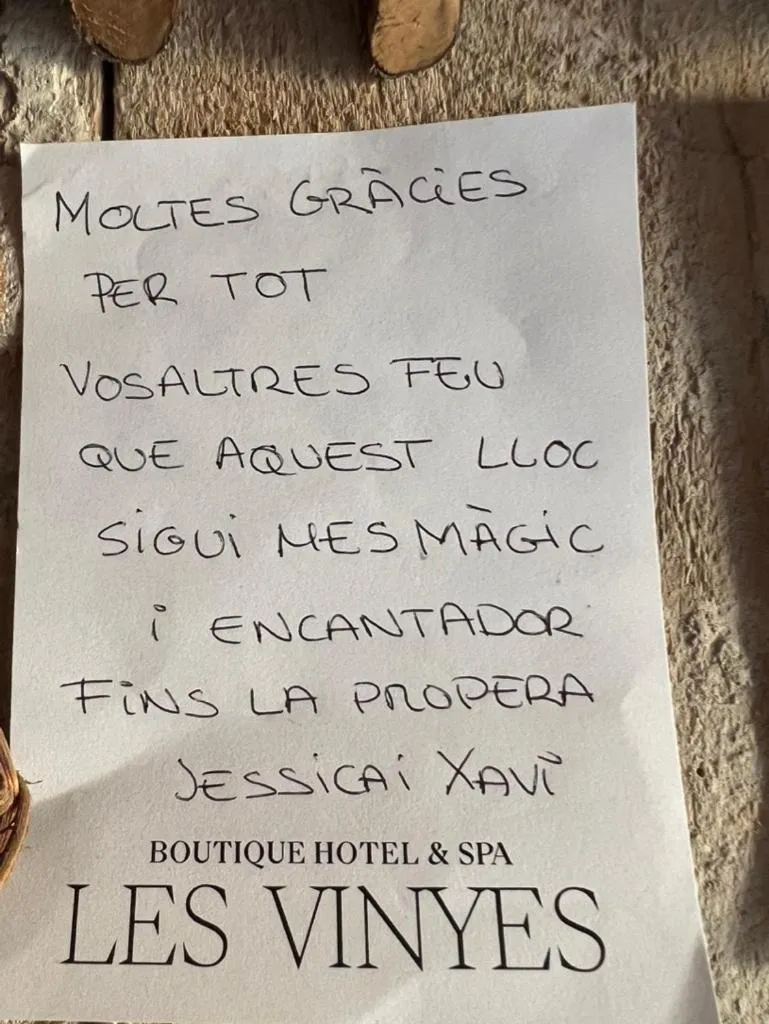 MOLTES GRÀCiES
PER TOT
VOSALTRES FEU
QUE AQUEST LLOC
SiGUi MES MÀGiC
i ENCANTADOR
FiNS LA PROPERA
JESSiCA i XAVi
BOUTIQUE HOTEL & SPA
LES VINYES